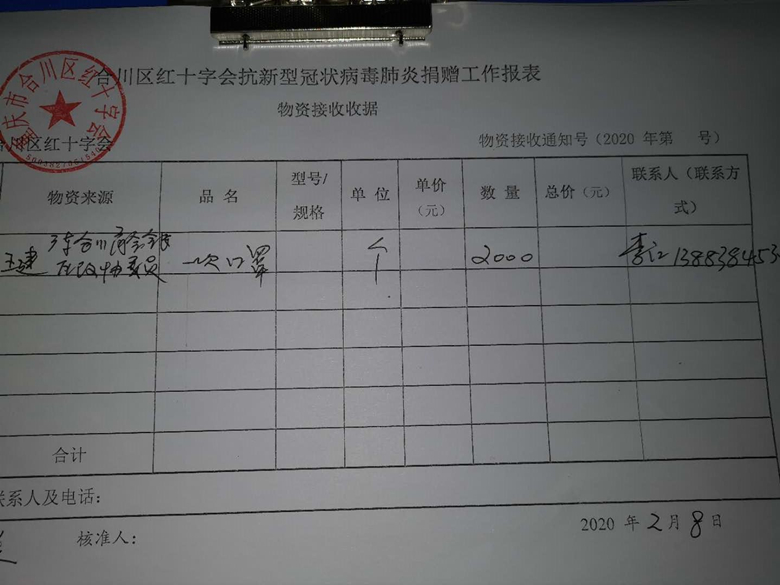 合川区红十字会抗新型冠状病毒肺炎捐赠工作报表
物资接收收据
重庆市合川区红十字会
合川区红十字会
物资接收通知号（2020 年第 号）
物资来源 品 名 型号/规格 单 位 单价（元） 数 量 总价（元） 联系人（联系方式）
王建 合川 区政协委员 一次口罩 个 2000 138838453
合计
联系人及电话：
核准人：
2020 年 2 月 8 日